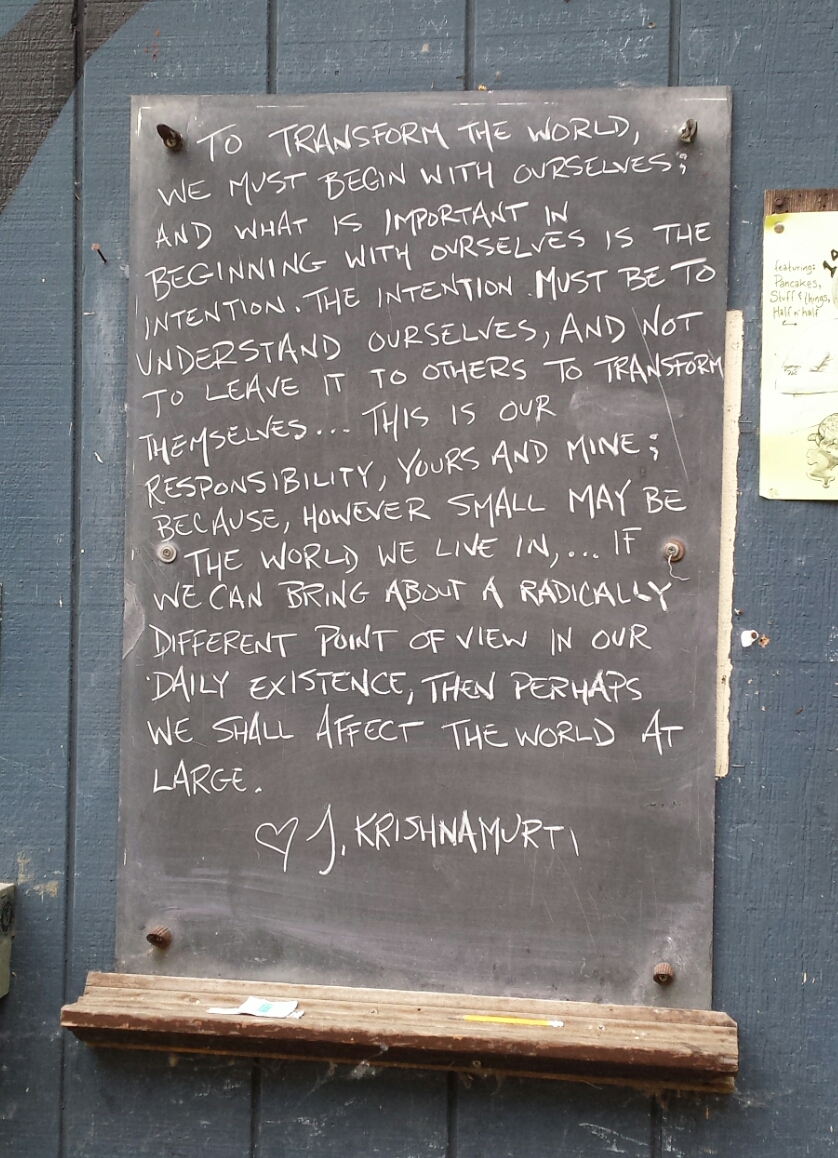 TO TRANSFORM THE WORLD,
WE MUST BEGIN WITH OURSELVES;
AND WHAT IS IMPORTANT IN
BEGINNING WITH OURSELVES IS THE
INTENTION. THE INTENTION MUST BE TO
UNDERSTAND OURSELVES, AND NOT
TO LEAVE IT TO OTHERS TO TRANSFORM
THEMSELVES... THIS IS OUR
RESPONSIBILITY, YOURS AND MINE;
BECAUSE, HOWEVER SMALL MAY BE
THE WORLD WE LIVE IN,... IF
WE CAN BRING ABOUT A RADICALLY
DIFFERENT POINT OF VIEW IN OUR
DAILY EXISTENCE, THEN PERHAPS
WE SHALL AFFECT THE WORLD AT
LARGE.
♡ J. KRISHNAMURTI
featuring:
Pancakes,
Stuff & things,
Half n' half